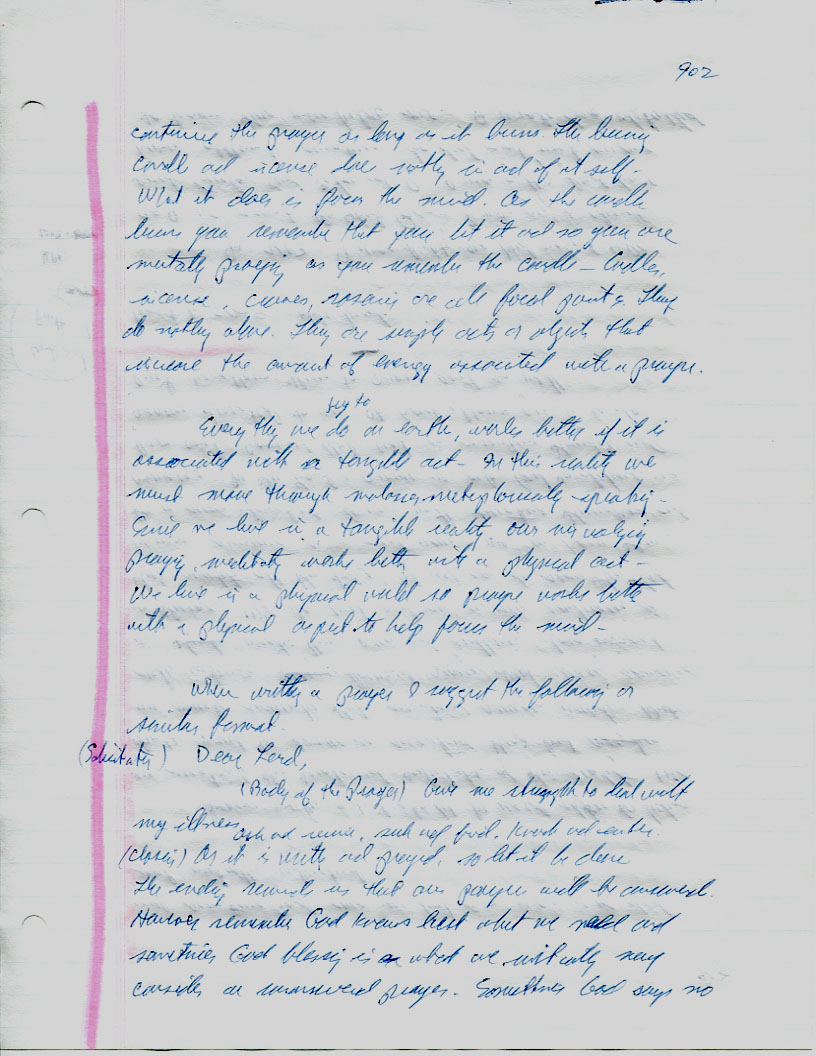 902
continues the prayer as long as it burns the burning
candle and incense does nothing in and of it self-
What it does is focus the mind. As the candle
burns you remember that you lit it and so you are
mentally praying as you remember the candle - Candles,
incense, rosaries are all focal points They
do nothing alone. They are simple acts or objects that
increase the amount of energy associated with a prayer.
try to
Everything we do on earth, works better if it is
associated with a tangible act - In this reality we
must move through molasses metaphorically speaking-
Since we live in a tangible reality our
praying, meditating works better with a physical act -
We live in a physical world so prayer works better
with a physical aspect to help focus the mind -
When writing a prayer I suggest the following or
similar format.
(Salutation) Dear Lord,
(Body of the Prayer) Give me strength to deal with
my illness
ask and receive, seek and find, knock and enter.
(Closing) As it is written and prayed, so let it be done
The ending reminds us that our prayer will be answered.
However remember God knows best what we need and
sometimes God blessing is what we initially may
consider an unanswered prayer - Sometimes God says no